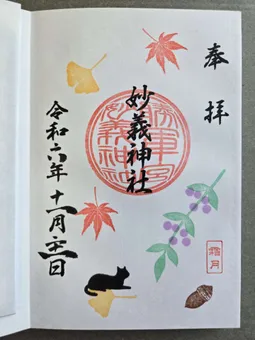 奉拝
妙義神社
令和六年十一月二十一日
霜月